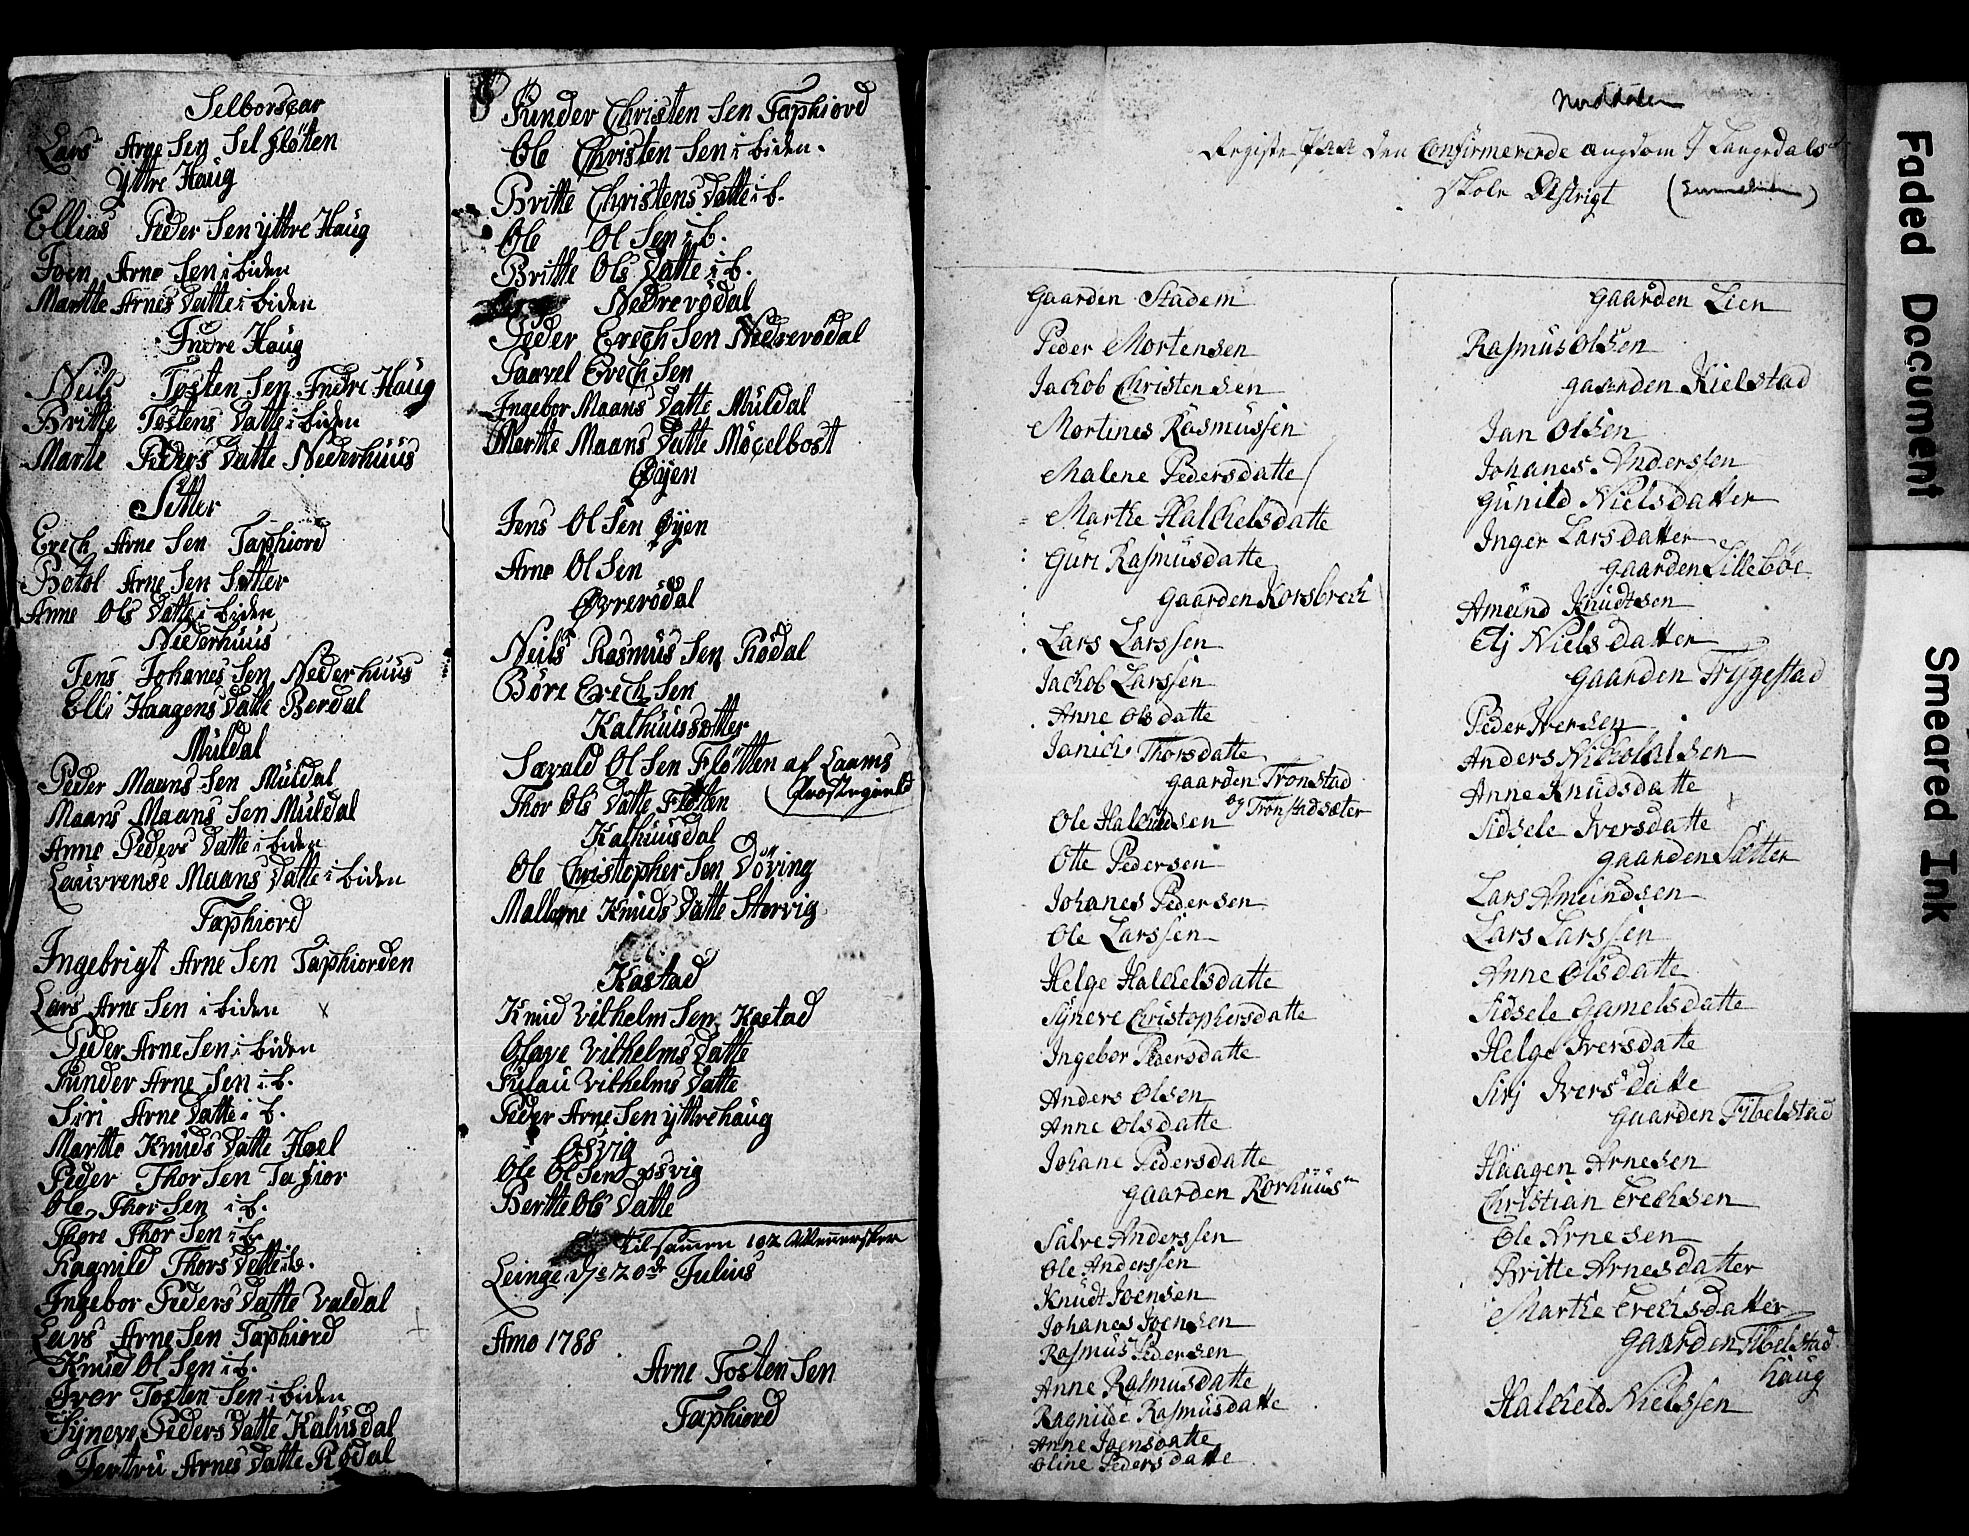 Selborsgar
Lars Arne Sen Sel fløtten
Yttre Haug
Ellias Peder Sen yttre Haug
Joen Arne Sen i biden
Martte Arnes datte i biden
Indre Haug
Neils Tosten Sen Indre Haug
Britte Tostens datte i biden
Marte Peders datte Nederhuus
Setter
Erech Arne Sen Taphiord
Botol Arne Sen Setter
Anne Ols datte i biden
Nederhuus
Jens Johanes Sen Nederhuus
Elli Haagens datte Berdal
Muldal
Peder Maans Sen Muldal
Maans Maans Sen Muldal
Anne Peders datte i biden
Lauvrense Maans datte i biden
Taphiord
Ingebrigt Arne Sen Taphiorden
Lars Arne Sen i biden x
Peder Arne Sen i biden
Punder Arne Sen i b.
Siri Arne datte i b.
Martte Knuds datte Hoel
Peder Thor Sen Tafior
Ole Thor Sen i b.
Thore Thor Sen i b.
Ragnild Thors datte i b.
Ingebor Peders datte Valdal
Lars Arne Sen Taphiord
Knud Ol Sen i b.
Iver Tosten Sen i biden
Syneve Peders datte Kalusdal
Jertru Arnes datte Rødal
Punder Christen Sen Taphiord
Ole Christen Sen i biden.
Britte Christens datte i b.
Ole Ol Sen i b.
Britte Ols datte i b.
Nedrerødal
Peder Erech Sen Nedrerødal
Paavel Erech Sen
Ingebor Maans datte Muldal
Marthe Maans datte Møgelbost
Øyen
Jens Ol Sen Øyen
Arne Ol Sen
Øvrerødal
Neils Rasmus Sen Rødal
Børe Erech Sen
Kalhuussetter
Sævald Ol Sen Fløtten af Laams
Thor Ols datte Fløten (Prostegield
Kalhuusdal
Ole Christopher Sen Døving
Mallene Knuds datte Storvig
Kastad
Knud Vilhelm Sen Kastad
Olave Vilhelms datte
Gulau Vilhelms datte
Peder Arne Sen yttrehaug
Osvig
Ole Ol Sen Osvig
Berthe Ols datte
tilsamen 102 Mennersker
Leinge d 20de Julius
Amo 1788
Arne Tosten Sen
Taphiord
Norddalen
Register Paa den Confirmerende ungdom I Langedals
skole Destrigt
Gaarden Stadem
Peder Mortensen
Jachob Christensen
Mortines Rasmussen
Malene Pedersdatte
Marthe Halchelsdatte
Guri Rasmusdatte
Gaarden Korsbrech
Lars Larssen
Jachob Larssen
Anne Olsdatte
Janiche Thorsdatte
gaarden Tronstad
og Tronstadsæter
Ole Halchelsen
Otte Pedersen
Johanes Pedersen
Ole Larssen
Helge Halchelsdatte
Syneve Christophersdatte
Ingebor Pedersdatte
Anders Olsen
Anne Olsdatte
Johane Pedersdatte
gaarden Rorhuus
Salve Anderssen
Ole Anderssen
Knudt Joensen
Johanes Joensen
Rasmus Pedersen
Anne Rasmusdatte
Ragnilde Rasmusdatte
Anne Joensdatte
Oline Pedersdatte
gaarden Lien
Rasmus Olsen
gaarden Kielstad
Jan Olsen
Johanes Anderssen
Gunild Nielsdatter
Inger Larsdatter
gaarden Lillebøe
Amund Knudtsen
Elj Nielsdatter
Gaarden Trygestad
Peder Iversen
Anders Nicholalsen
Anne Knudsdatte
Sidsele Iversdatte
gaarden Sætter
Lars Amundsen
Lars Larssen
Anne Olsdatte
Sidsele Gamelsdatte
Helge Iversdatte
Sirj Iversdatte
Gaarden Fibelstad
Haagen Arnesen
Christian Erechsen
Ole Arnesen
Britte Arnesdatter
Marthe Erechsdatter
Gaarden Fibelstad
haug
Halcheld Nielssen
Faded Document
Smeared Ink